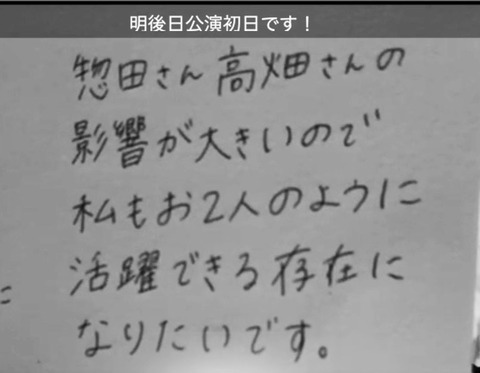 明後日公演初日です！
惣田さん高畑さんの
影響が大きいので
私もお2人のように
活躍できる存在に
なりたいです。
に